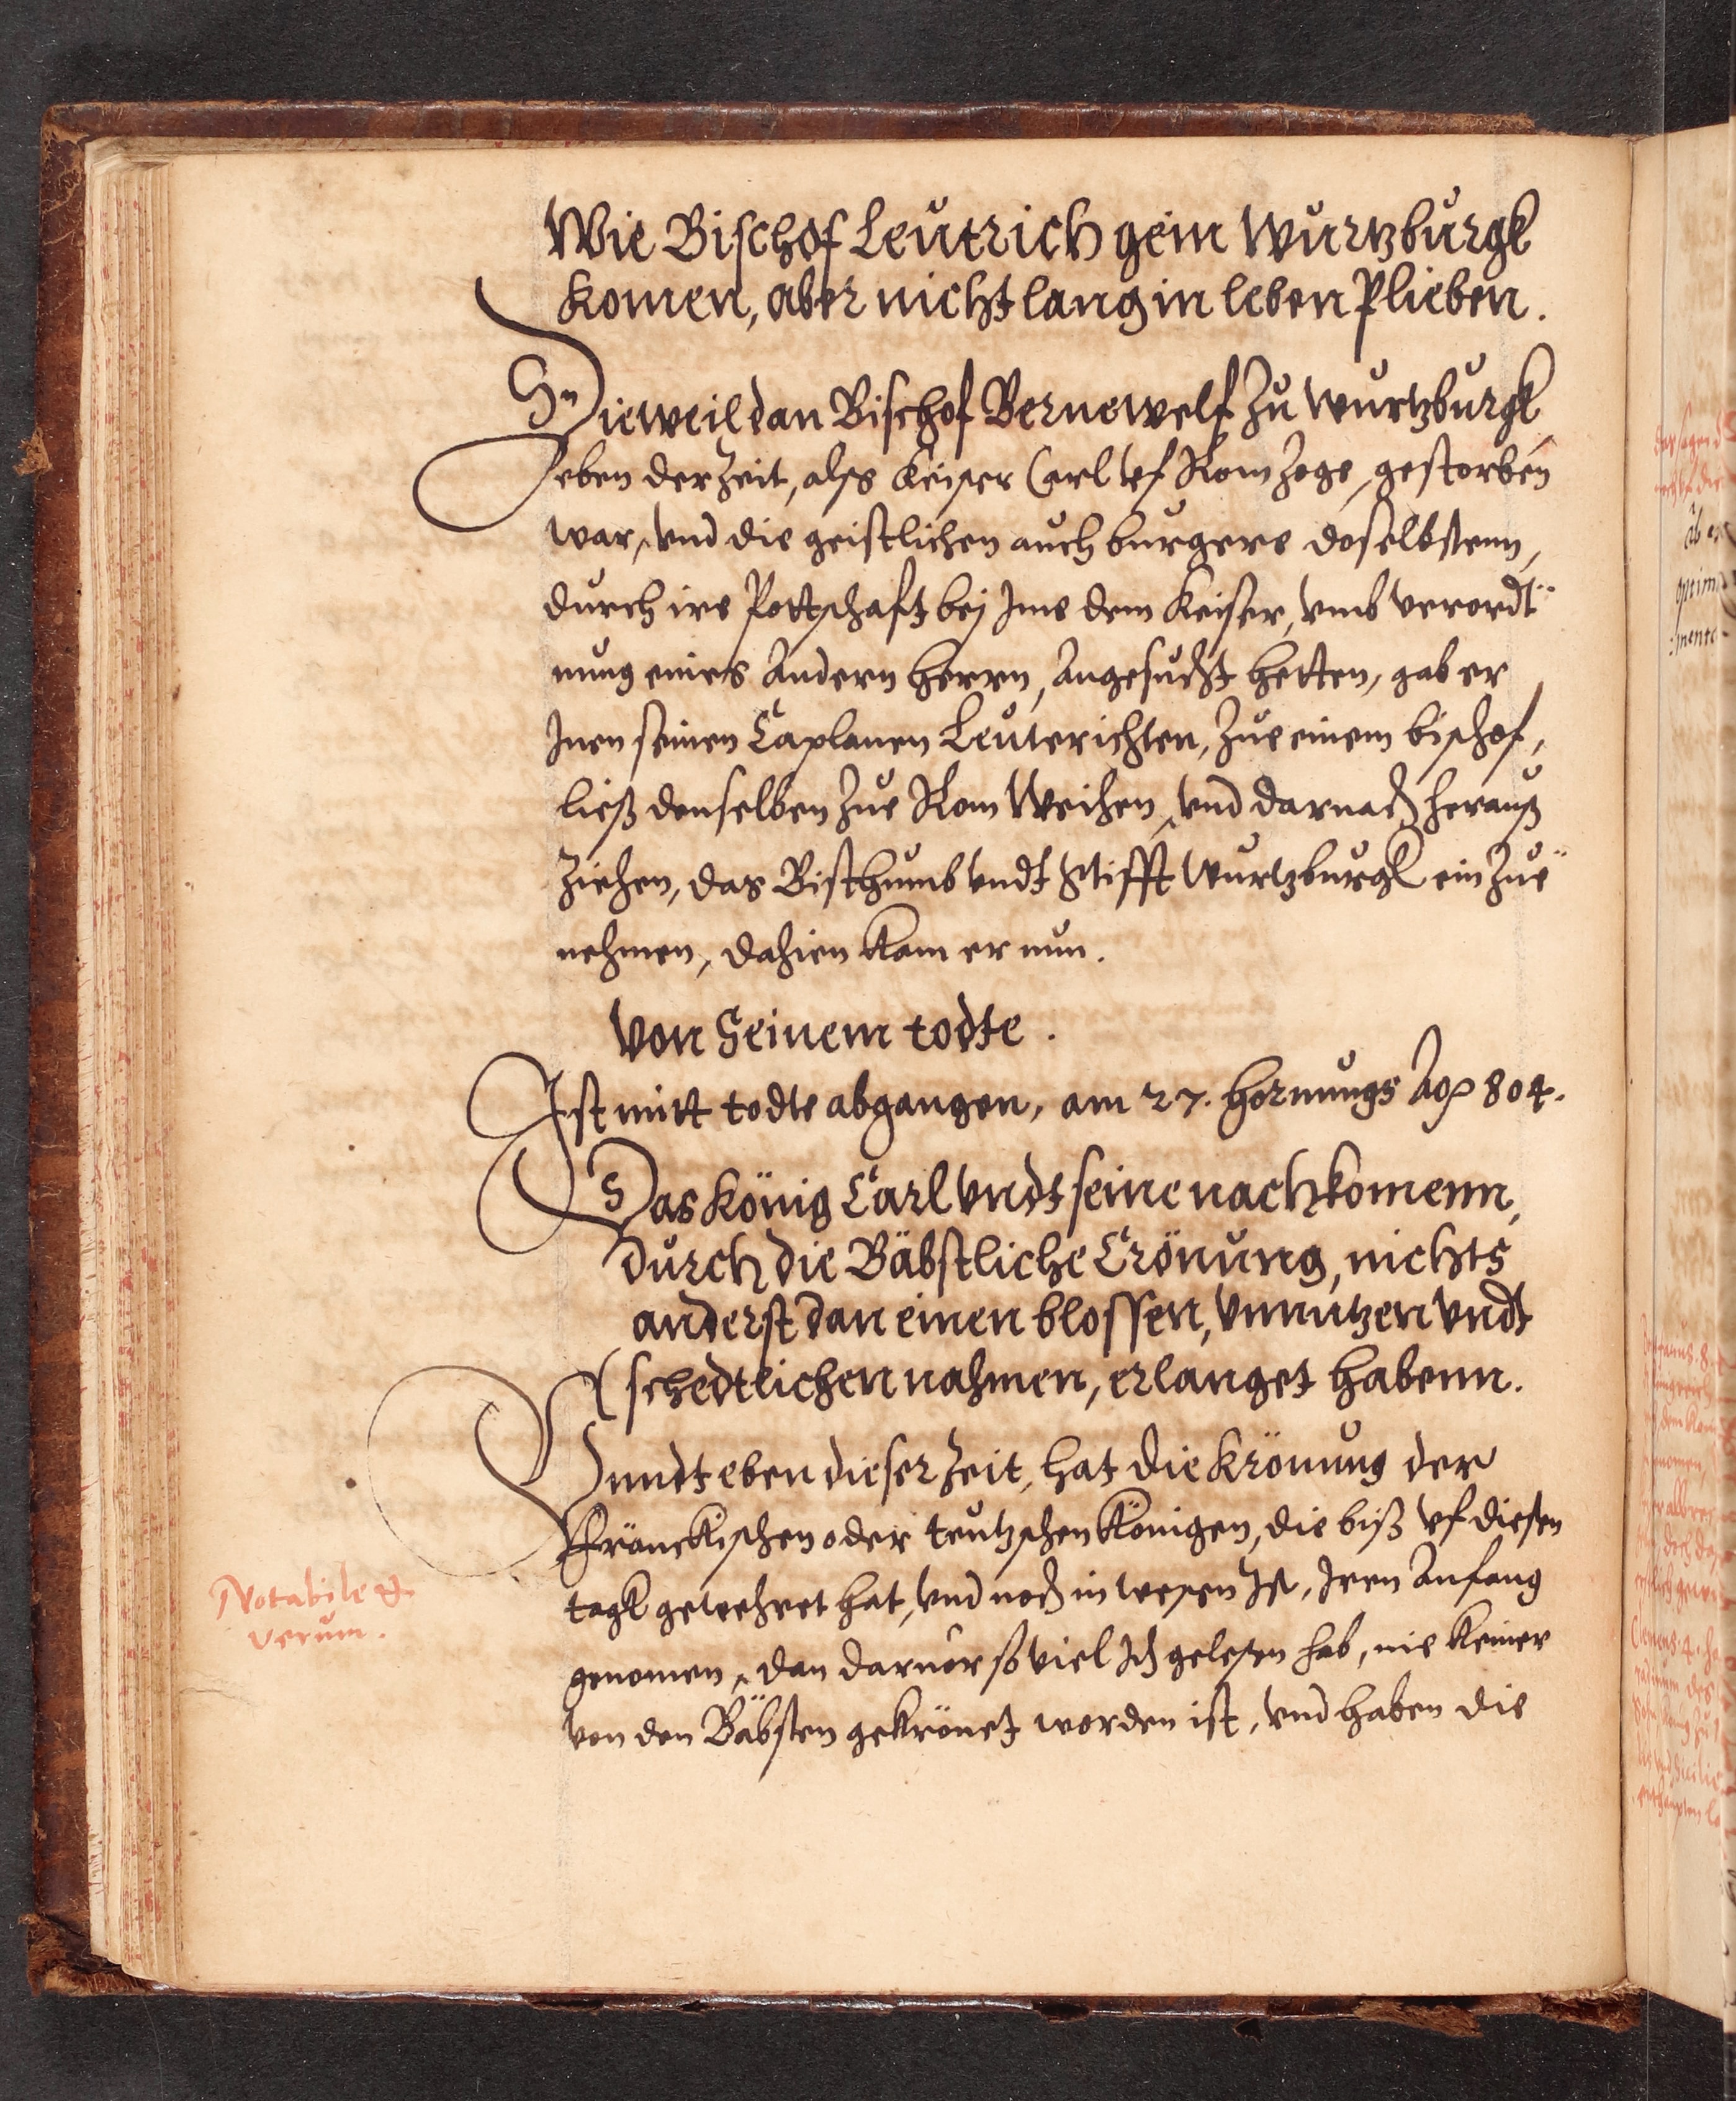 Wie Bischof Leutrich gein Wurtzburgk
komen, aber nicht lang in leben Plieben.
Dieweil dan Bischof Bernewelf zu Wurtzburgk
eben der zeit, alss Keiser Carl vf Rom zoge, gestorben
war, vnd die geistlichen auch burgere doselbstenn,
durch ire Pottschaft bej Ime dem Keiser, vmb verordt
nung eines Andern herrn, Angesucht hetten, gab er
Inen seinen Caplanen Leuterichten, zue einem bischof,
ließ denselben zue Rom Weihen, vnd darnach herauß
ziehen, das Bisthumb vndt Stifft Wurtzburgk ein zue
nehmen, dahien kam er nun.
Von Seinem todte.
Ist mitt todte abgangen, am 27. hornungs Aō 804.
Das König Carl vndt seine nachkomenn,
durch die Bäbstliche Crönung, nichts
anderst dan einen blossen, vnnutzen vndt
schedtlichen nahmen, erlanget habenn.
Vnndt eben dieser zeit, hat die Krönung der
Fränckischen oder teutzschen Königen, die biß vf diesen
tagk gewehret hat, vnd noch in wesen Ist, Iren Anfang
genomen, dan daruor so viel Ich gelesen hab, nie keiner
von den Bäbsten gekrönet worden ist, vnd haben die
Notabile &
verum.